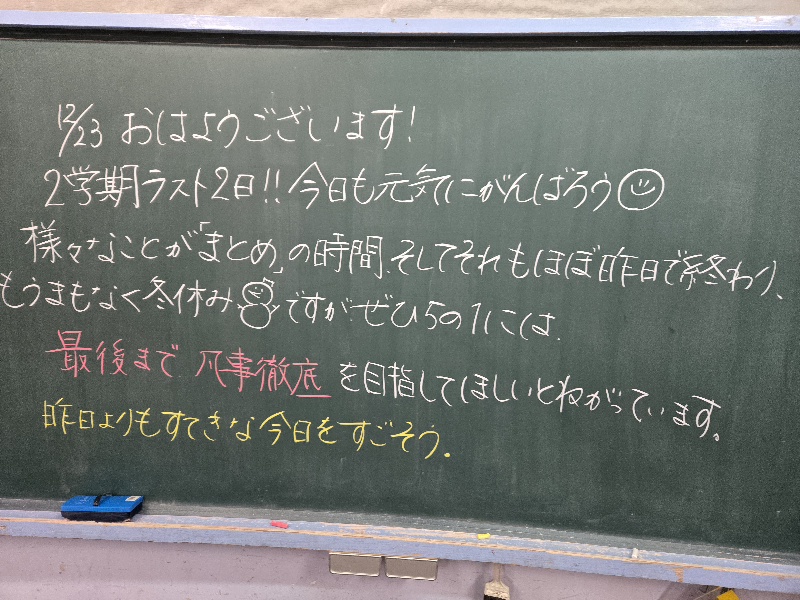 12/23 おはようございます!
2学期ラスト2日!!今日も元気にがんばろう
様々なことが「まとめ」の時間、そしてそれもほぼ昨日で終わり、
もうまもなく冬休みですが、ぜひ5の1には、
最後まで 凡事徹底 を目指してほしいとねがっています。
昨日よりもすてきな今日をすごそう。